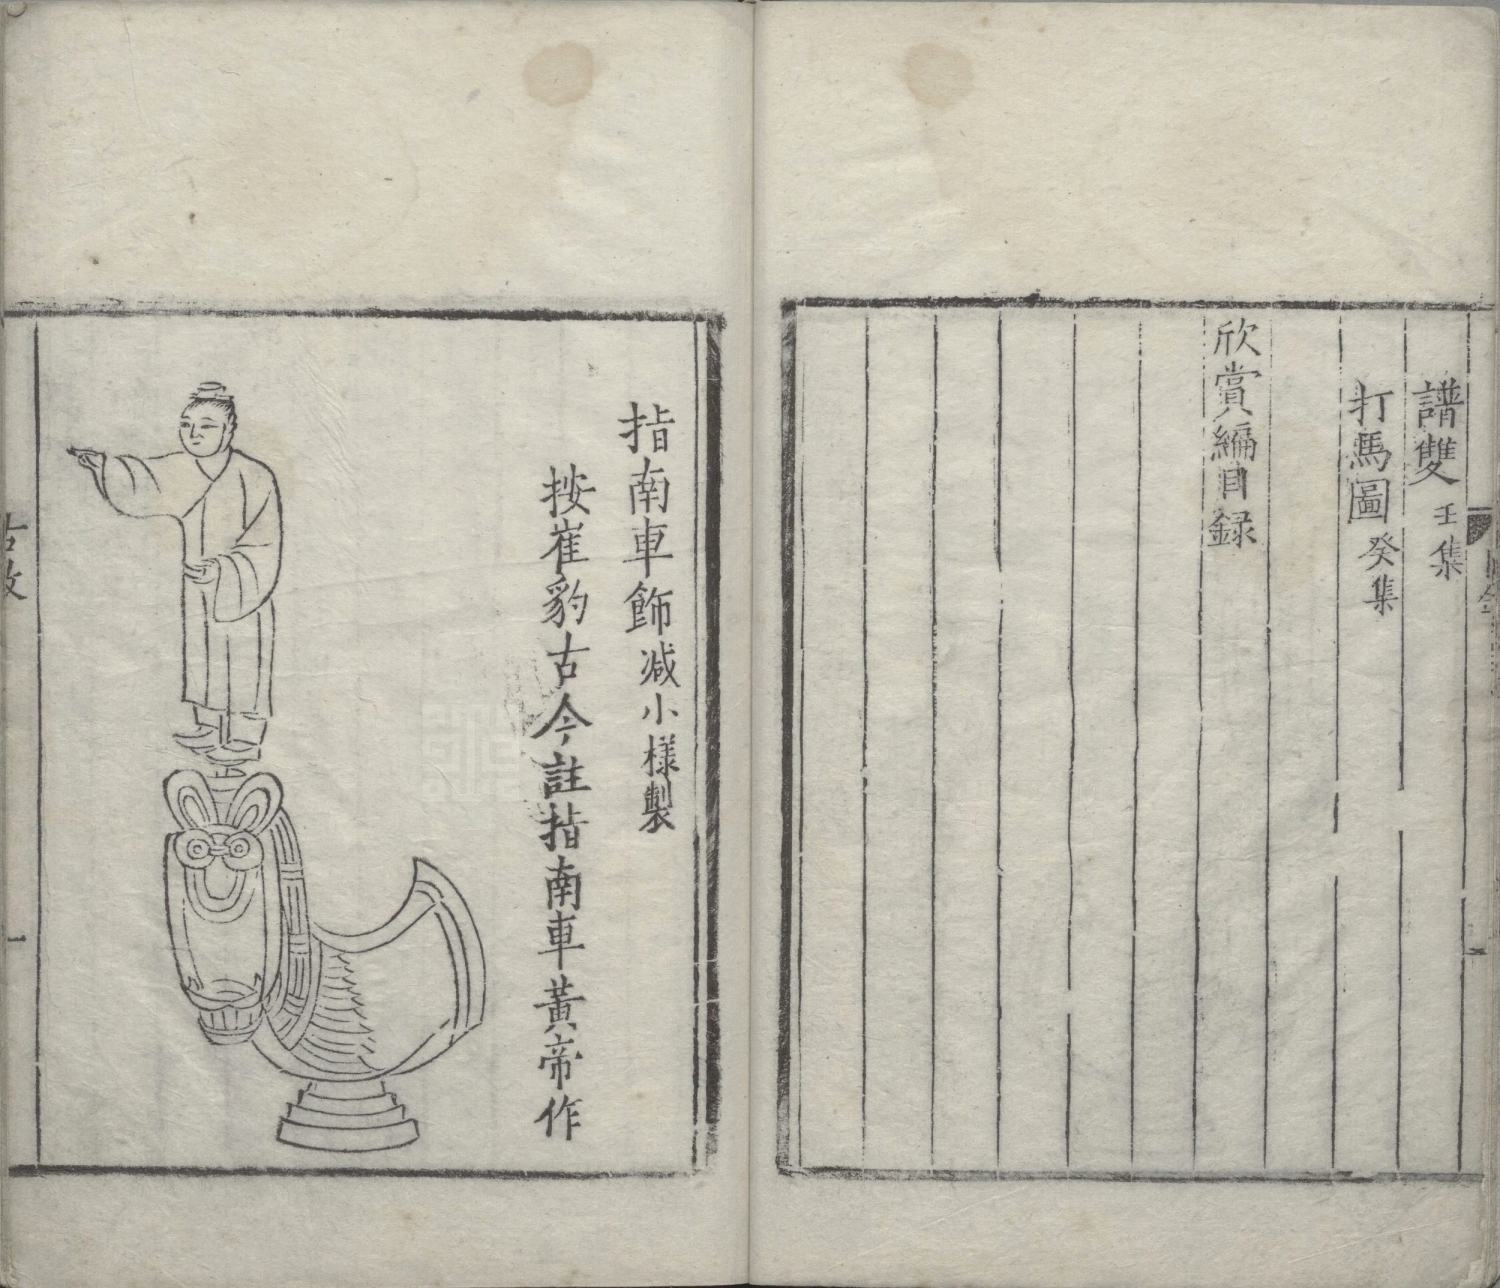 譜雙 壬集
打馬圖 癸集
欣賞編目録
指南車飾减小様製
按崔豹古今註指南車黃帝作
一